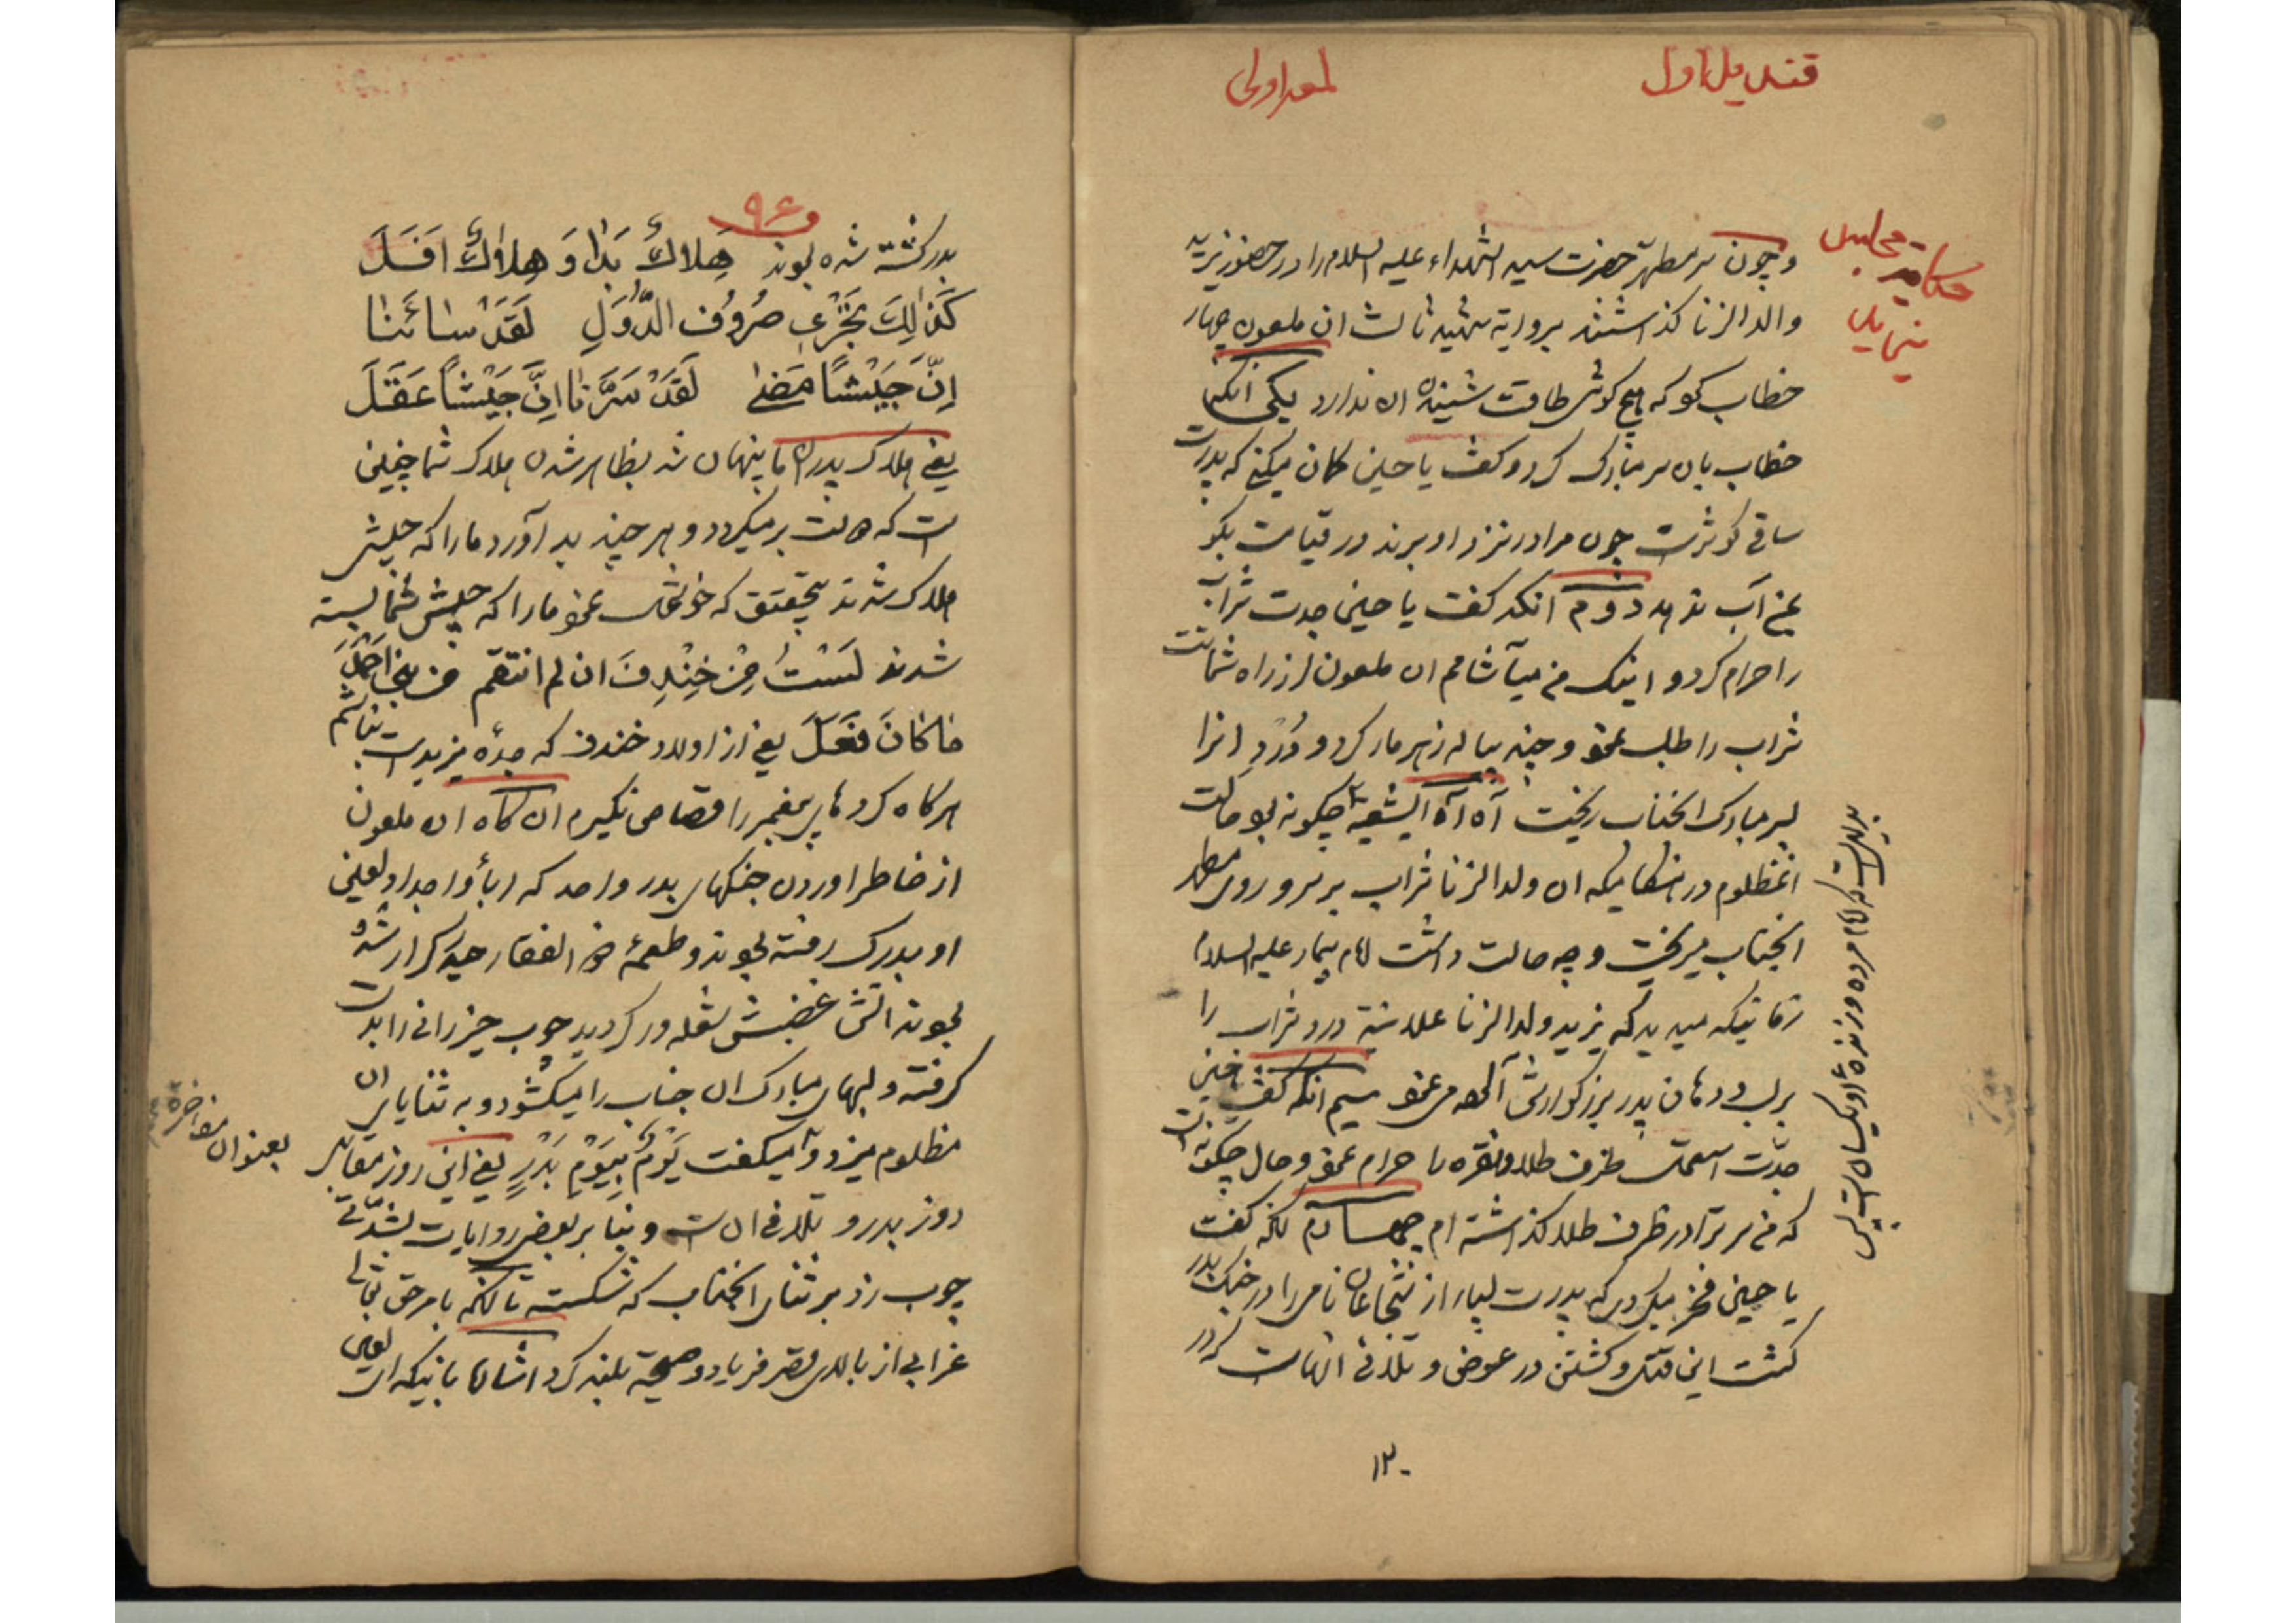 قندیل اول
لمعه اولی
حکایت مجالس
و چون سر مطهر حضرت سید الشهداء علیه السلام را در حضور یزید
ولد الزنا گذاشتند بروایة شهید ثالث ان ملعون چهار
خطاب کو که هیچ گوش طاقت شنیدن ان ندارد یکی آنکه
خطاب بان سر مبارک کرد و گفت یا حسین گمان میکنی که پدرت
ساقی کوثرست چون مرا در نزد او برند در قیامت بگو
بمن آب ندهد دوم آنکه گفت یا حسین جدت شراب
را حرام کرد و اینک من میآشامم ان ملعون از راه شماتت
شراب را طلب نمود و چند پیاله زهر مار کرد و دُرد انرا
بسر مبارک انجناب ریخت آه آه ایشیعه چگونه بود حالت
انمظلوم در هنگامیکه ان ولد الزنا شراب بر سر و روی مطهر
انجناب میریخت و چه حالت داشت امام بیمار علیه السلام
زمانیکه میدید که یزید ولد الزنا علانیة درد شراب را
بر لب و دهان پدر بزرگوارش آلوده می نمود سیم آنکه گفت یا حسین
جدّت استعمال ظرف طلا و نقره را حرام نمود و حال چگونه است
که من سر ترا در ظرف طلا گذاشته ام چهارم آنکه گفت
یا حسین فخر میکردی که پدرت بسیار از شجاعان نامی را در جنک بدر
کشت این قتل و کشتن در عوض و تلافی انهاست که در
بدیهیست که امام مرده و زنده او یکسان است پس
۱۲۰
۹۶
بدر کشته شده بودند هِلاكٌ بَدا وَ هِلاكٌ اَفَلَ
كَذالِكَ تَجْرِي صُرُوف الدُّوَلِ لَقَدْ سائَنا
اِنَّ جَيْشاً مَضىٰ لَقَدْ سَرَّنا اِنَّ جَيْشاً عَقَلَ
یعنی هلاک بدر ما پنهان شد بظاهر شدن هلاک شما چنین
است که دولت برمیگردد و هر چند بد آورد ما را که جیش
هلاک شدند بتحقیق که خوشحال نمود ما را که جیش شما بسته
شدند لَسْتُ مِنْ خِنْدِفَ ان لم انتقم من بنی احمد
ما كانَ فَعَلَ یعنی از اولاد خندف که جدّه یزیدست نباشم
هر گاه کردهای پیغمبر را قصاص نگیرم ان گاه ان ملعون
از خاطر اوردن جنگهای بدر و احد که اباء و اجداد لعین
او بدرک رفته بودند و طعمهٔ ذو الفقار حیدر کرار شده
بودند اتش غضبش شعله ور گردید چوب خیزرانی را بدست
گرفته و لبهای مبارک ان جناب را میگشود و به ثنایای ان
مظلوم میزد و میگفت يَوْمٌ بِيَوْمِ بَدْرٍ یعنی این روز مقابل
بعنوان مفاخره
روز بدر و تلافی ان است و بنا بر بعض روایات بشدّتی
چوب زد بر ثنای انجناب که شکسته تا آنکه بامر حق تعالی
غرابی از بالای قصر فریاد و صیحه بلند کرد اشاره باینکه ای لعین